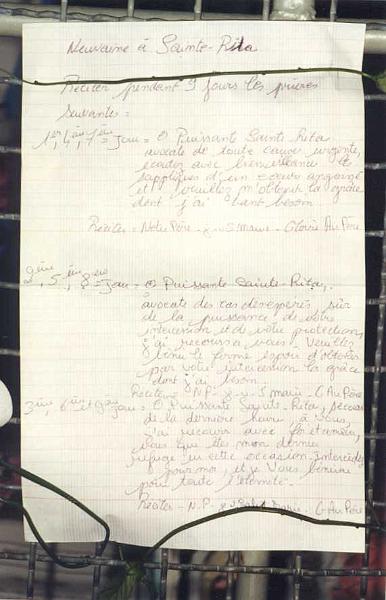 Neuvaine à Sainte-Rita
Réciter pendant 9 jours les prières
suivantes =
1er, 4ème, 7ème = Jour = O Puissante Sainte Rita
avocate de toute cause urgente,
écoutez avec bienveillance les
suppliques d'un coeur angoissé
et veuillez m'obtenir la grâce
dont j'ai tant besoin
Réciter = Notre Père - Je v. S Marie - Gloire Au Père
2ème, 5ème, 8ème = Jour = O Puissante Sainte-Rita,
avocate des cas désespérés, sûr
de la puissance de votre
intercession et de votre protection,
j'ai recours à vous. Veuillez
le ferme espoir d'obtenir
par votre intercession la grâce
dont j'ai besoin.
Réciter = N.P - Je v. S marie - G Au Père
3ème, 6ème et 9ème Jour = O Puissante Sainte Rita, secours
de la dernière heure, à vous,
j'ai recours avec
que êtes mon dernier
refuge en cette occasion - intercédez
pour moi, et je Vous bénirai
pour toute l'éternité -
Réciter - N.P - Je v Salue Marie. G Au Père